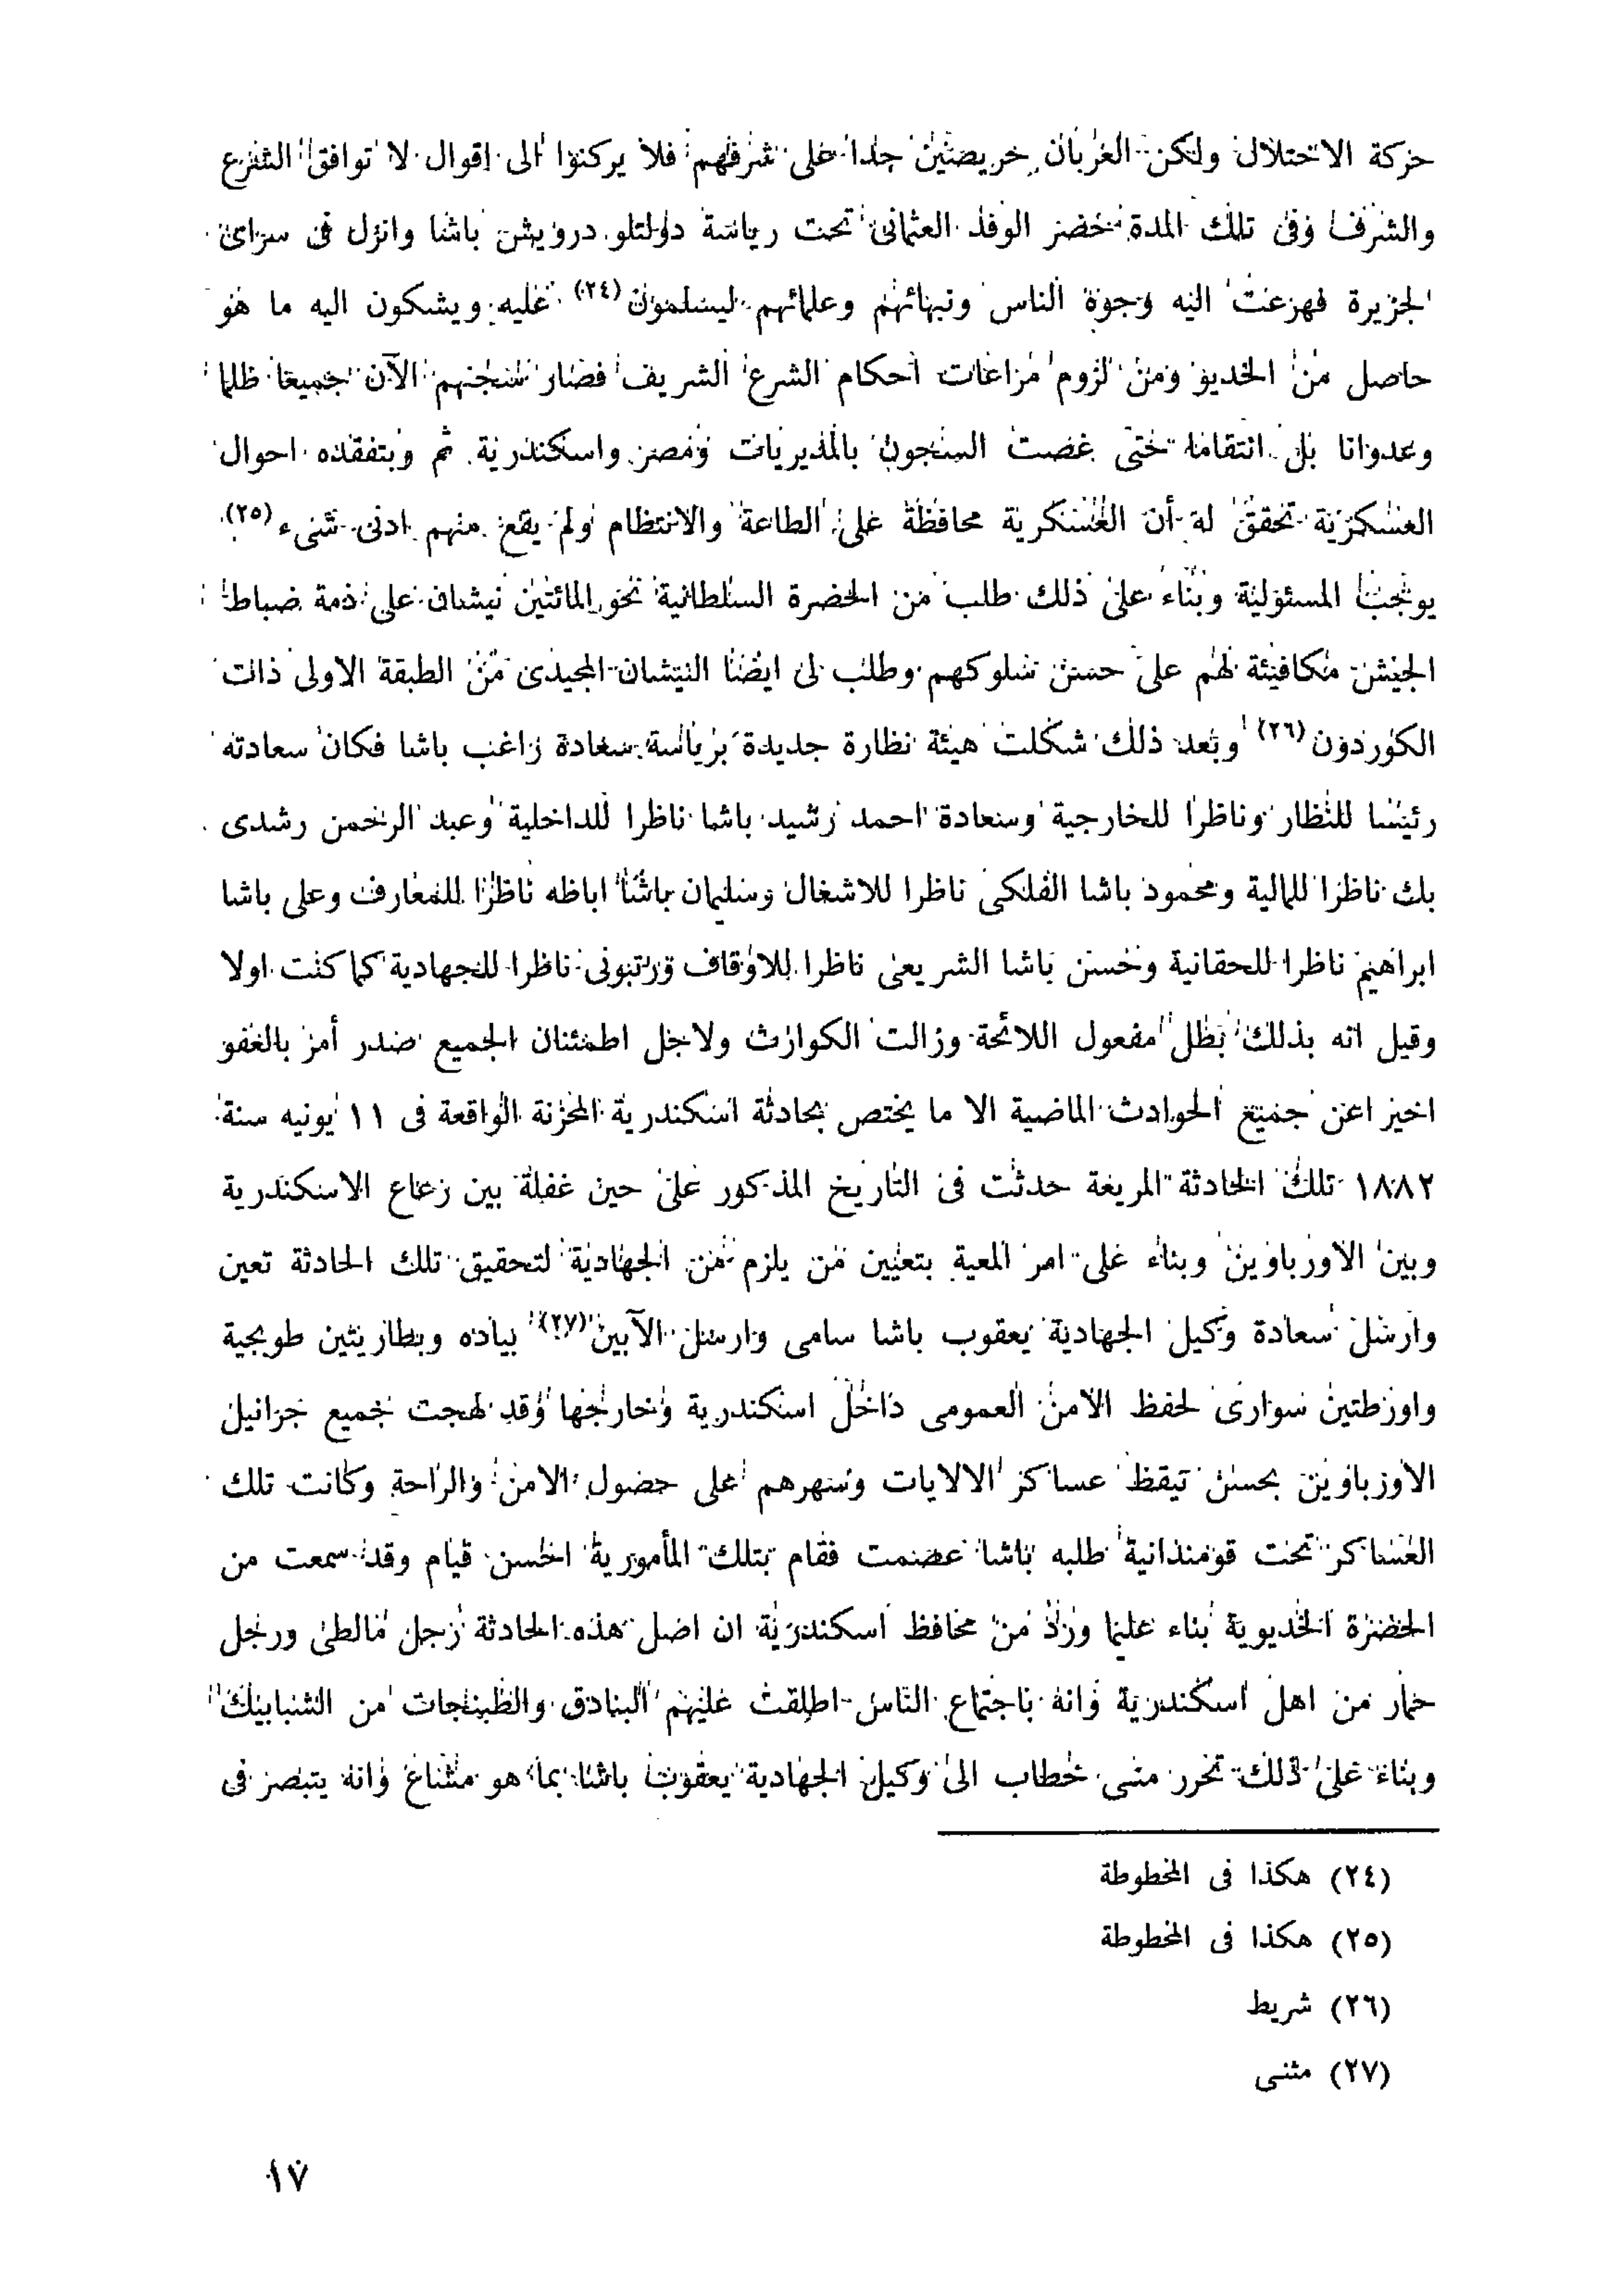 حركة الاحتلال ولكن العربان حريصين جدا على شرفهم فلا يركنوا الى اقوال لا توافق الشرع
والشرف وفى تلك المدة حضر الوفد العثمانى تحت رياسة دولتلو درويش باشا وانزل فى سراى
الجزيرة فهرعت اليه وجوة الناس ونبهائهم وعلمائهم ليسلمون (٢٤) عليه ويشكون اليه ما هو
حاصل من الخديو ومن لزوم مراعات احكام الشرع الشريف فصار سجنهم الآن جميعا ظلما
وعدوانا بل انتقاما حتى غصت السجون بالمديريات ومصر واسكندرية ثم وبتفقده احوال
العسكرية تحقق له أن العسكرية محافظة على الطاعة والانتظام ولم يقع منهم ادنى شىء (٢٥)
يوجب المسئولية وبناء على ذلك طلب من الحضرة السلطانية نحو المائتين نيشان على ذمة ضباط
الجيش مكافيئة لهم على حسن سلوكهم وطلب لى ايضا النيشان المجيدى من الطبقة الاولى ذات
الكوردون (٢٦) وبعد ذلك شكلت هيئة نظارة جديدة برياسة سعادة راغب باشا فكان سعادته
رئيسا للنظار وناظرا للخارجية وسعادة احمد رشيد باشا ناظرا للداخلية وعبد الرحمن رشدى
بك ناظرا للمالية ومحمود باشا الفلكى ناظرا للاشغال وسليمان باشا اباظه ناظرا للمعارف وعلى باشا
ابراهيم ناظرا للحقانية وحسن باشا الشريعى ناظرا للاوقاف ورتبونى ناظرا للجهادية كما كنت اولا
وقيل انه بذلك بطل مفعول اللائحة وزالت الكوارث ولاجل اطمئنان الجميع صدر أمر بالعفو
اخيرا عن جميع الحوادث الماضية الا ما يختص بحادثة اسكندرية المحزنة الواقعة فى ١١ يونيه سنة
١٨٨٢ تلك الحادثة المريعة حدثت فى التاريخ المذكور على حين غفلة بين رعاع الاسكندرية
وبين الاورباوين وبناء على امر المعية بتعيين من يلزم من الجهادية لتحقيق تلك الحادثة تعين
وارسل سعادة وكيل الجهادية يعقوب باشا سامى وارسل الآيين (٢٧) بياده وبطاريتين طوبجية
واورطتين سوارى لحفظ الامن العمومى داخل اسكندرية وخارجها وقد لهجت جميع جرانيل
الاورباوين بحسن تيقظ عساكر الالايات وسهرهم على حصول الامن والراحة وكانت تلك
العساكر تحت قومندانية طلبه باشا عصمت فقام بتلك المأمورية احسن قيام وقد سمعت من
الحضرة الخديوية بناء عليما ورد من محافظ اسكندرية ان اصل هذه الحادثة رجل مالطى ورجل
حمار من اهل اسكندرية وانه باجتماع الناس اطلقت عليهم البنادق والطبنجات من الشبابيك
وبناء على ذلك تحرر منى خطاب الى وكيل الجهادية يعقوب باشا بما هو مشاع وانه يتبصر فى
(٢٤) هكذا فى المخطوطة
(٢٥) هكذا فى المخطوطة
(٢٦) شريط
(٢٧) مثنى
١٧